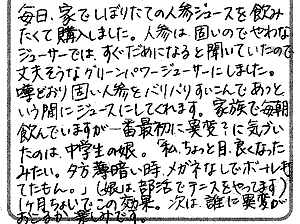 毎日、家でしぼりたての人参ジュースを飲み
たくて購入しました。人参は、固いのでやわな
ジューサーでは、すぐだめになると聞いていたので
丈夫そうなグリーンパワージューサーにしました。
噂どおり固い人参をバリバリすいこんであっと
いう間にジュースにしてくれます。家族で毎朝
飲んでいますが一番最初に異変?に気づい
たのは、中学生の娘。「私、ちょっと目、良くなった
みたい。夕方薄暗い時、メガネなしでボール打
てたもん。」(娘は、部活でテニスをやってます)
1ヶ月ちょいでこの効果。次は、誰に異変が
おこるか、楽しみです。